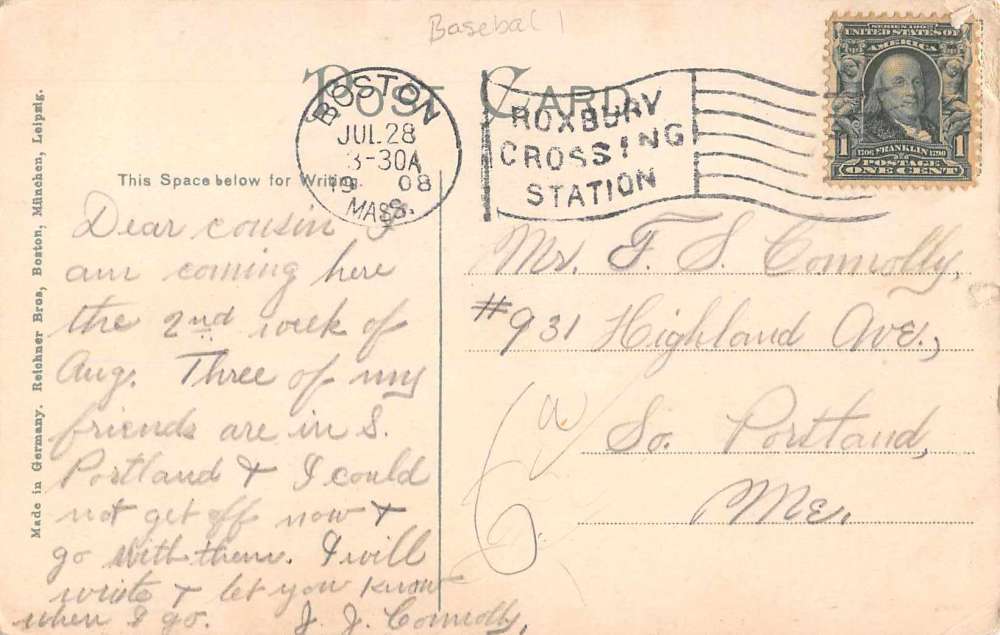 Basebal l
POST CARD
BOSTON
JUL 28
3-30A
19 08
MASS.
ROXBURY
CROSSING
STATION
SERIES 1902
UNITED STATES OF
AMERICA
1 1
1706 FRANKLIN 1790
POSTAGE
ONE CENT
This Space below for Writing.
Dear cousin I
am coming here
the 2nd week of
Aug. Three of my
friends are in S.
Portland & I could
not get off now &
go with them. I will
write & let you know
when I go. J. J. Connolly,
Mr. F. S. Connolly,
#931 Highland Ave.,
So. Portland,
Me.
Made in Germany. Reichner Bros, Boston, München, Leipzig.